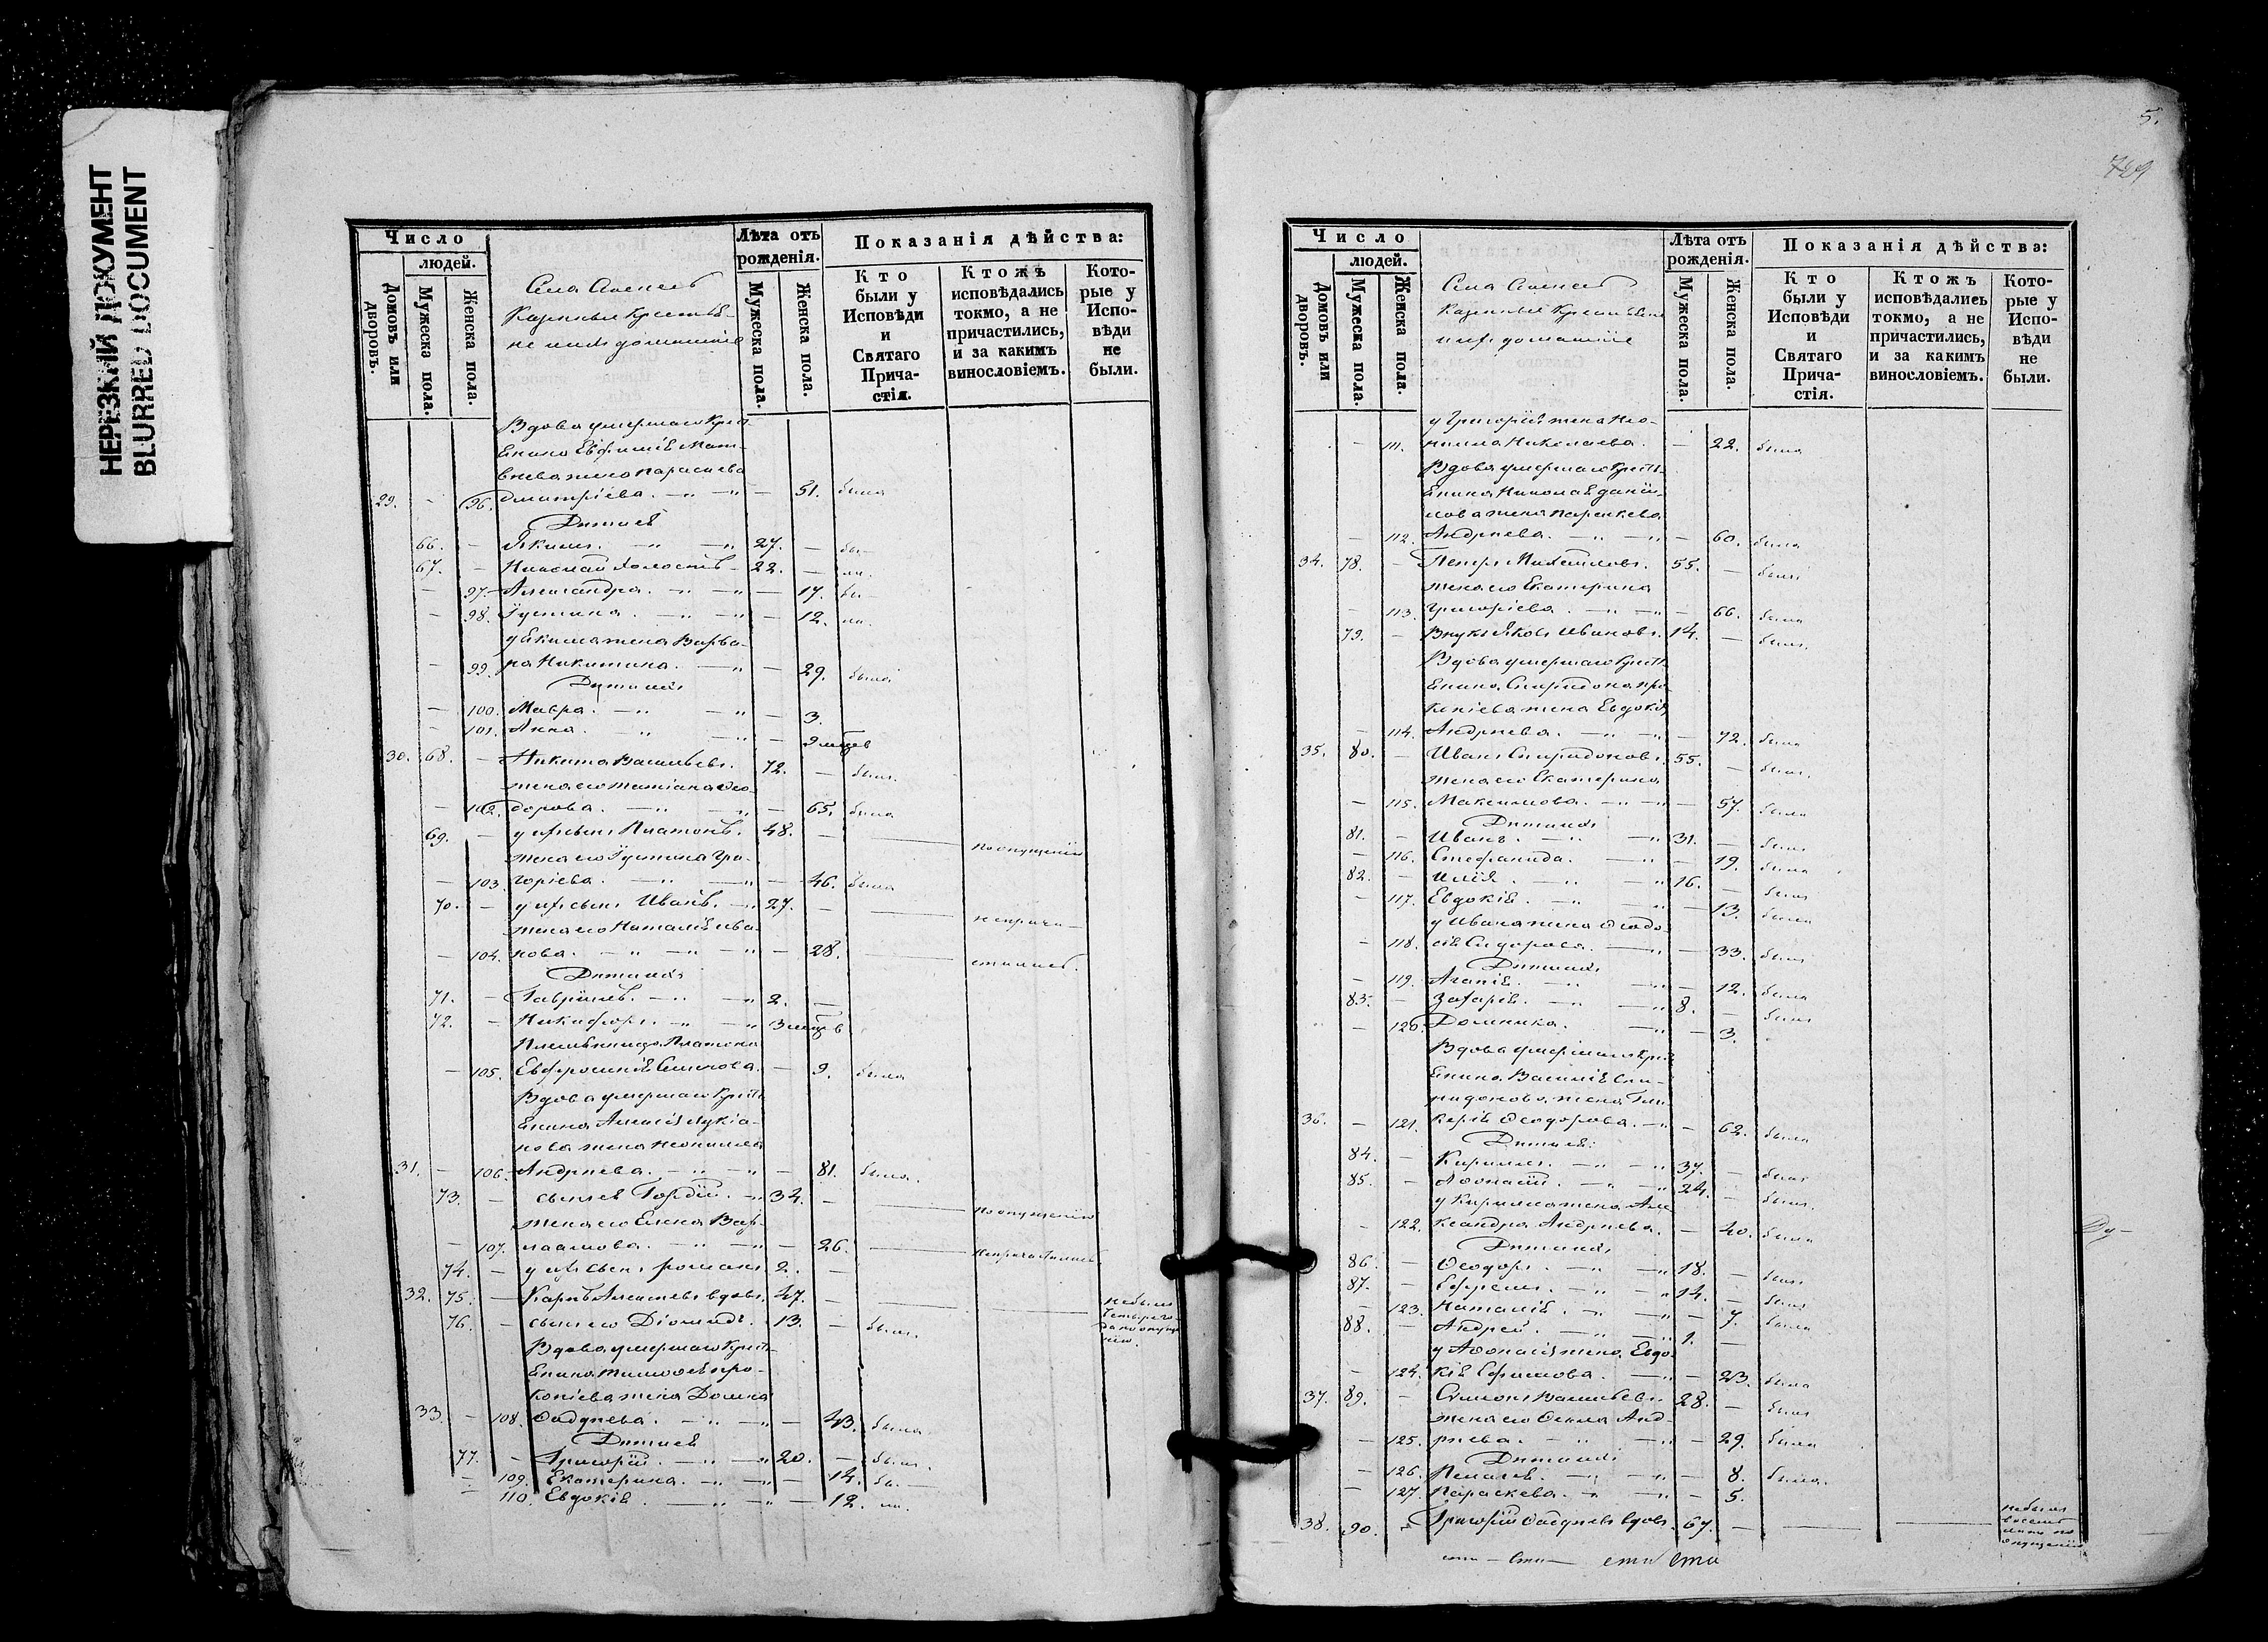 НЕРЕЗКИЙ ДОКУМЕНТ
BLURRED DOCUMENT
Число
людей.
Домовъ или дворовъ.
Мужеска пола.
Женска пола.
Села
Казенные Крестья-
не и ихъ домашние
Лѣта отъ рожденія.
Мужеска пола.
Женска пола.
Показанія дѣйства:
Кто были у Исповѣди и Святаго Прича-стія.
Ктожъ исповѣдались токмо, а не причастились, и за какимъ винословіемъ.
Кото-рые у Испо-вѣди не были.
Вдова умершаго Крест
янина Евфимія Мат-
вѣева жена Параскева
29. - 96. Дмитріева. - 51. была
Дѣти ея
66. - Якимъ. 27. - бы-
67. - Николай холостъ 22. - ли.
- 97. Александра. - 17. бы-
- 98. Іустина. - 12. ли.
у Якима жена Варва-
- 99. ра Никитина. - 29. была
Дѣти ихъ
- 100. Мавра. - 3.
- 101. Анна. - 9 мѣсцев
30. 68. - Никита Васильевъ. 72. - былъ.
жена его Татіана Ѳео-
- 102. дорова. - 65. была
69. - у ихъ сынъ Платонъ. 48. - по опущенію
жена его Іустина Гри-
- 103. горіева. - 46. была
70. - у ихъ сынъ Иванъ. 27. - не прича-
жена его Наталія Ива-
- 104. нова. - 28. стились.
Дѣти ихъ
71. - Гавріилъ. 2. -
72. - Никифоръ. 3 мѣсцев
Племянница Платона
- 105. Евфросинія Семенова. - 9. была
Вдова умершаго Крест
янина Алексія Лукіа-
нова жена Неонилла
31. - 106. Андреева. - 81. была.
73. - сынъ ея Гордій. 34. - по опущенію
жена его Елена Вар-
- 107. лаамова. - 26. не причастились
74. - у ихъ сынъ Романъ 2. -
32. 75. - Карпъ Алексѣевъ вдовъ. 47. - не былъ
76. - сынъ его Діомидъ. 13. - былъ.
Вдова умершаго Крест
янина Тимоѳея Про-
копіева жена Домна
33. - 108. Ѳаддеева. - 43. была
Дѣти ея
77. - Григорій. 20. - былъ.
- 109. Екатерина. - 14. бы-
- 110. Евдокія. - 12. ли.
5.
729
Число
людей.
Домовъ или дворовъ.
Мужеска пола.
Женска пола.
Села
Казенные Крестьяне
и ихъ домашніе
Лѣта отъ рожденія.
Мужеска пола.
Женска пола.
Показанія дѣйства:
Кто были у Исповѣди и Святаго Прича-стія.
Ктожъ исповѣдались токмо, а не причастились, и за какимъ винословіемъ.
Кото-рые у Испо-вѣди не были.
у Григорія жена Нео-
- 111. нилла Николаева. - 22. была
Вдова умершаго Крест
янина Николая Даніи-
лова жена Параскева
- 112. Андреева. - 60. была
34. 78. - Петръ Михайловъ. 55. - былъ
жена его Екатерина
- 113. Григоріева. - 66. была
79. - Внукъ Яковъ Ивановъ. 14. - былъ.
Вдова умершаго Крест
янина Спиридона Про
копіева жена Евдокія
- 114. Андреева. - 72. была
35. 80. - Иванъ Спиридоновъ. 55. - былъ.
жена его Екатерина
- 115. Максимова. - 57. была
Дѣти ихъ
81. - Иванъ. 31. - былъ
- 116. Стефанида. - 19. была
82. - Илія. 16. - былъ
- 117. Евдокія. - 13. была
у Ивана жена Ѳеодо-
- 118. сія Сидорова. - 33. была
Дѣти ихъ
- 119. Агапія. - 12. была
83. - Захарія. 8. - былъ
- 120. Домника. - 3.
Вдова умершаго Крест
янина Василія Спи-
ридонова жена Гли-
36. - 121. керія Ѳеодорова. - 62. была
Дѣти ея:
84. - Кириллъ. 37. - былъ
85. - Аѳонасій. 24. - былъ.
у Кирилла жена Але
- 122. ксандра Андреева. - 40. была
Дѣти ихъ
86. - Ѳеодоръ. 18. - былъ
87. - Ефремъ. 14. - былъ
- 123. Наталія. - 7. была
88. - Андрей. 1. -
у Аѳонасія жена Евдо
- 124. кія Ефимова. - 23. была
37. 89. - Симонъ Васильевъ. 28. - былъ
жена его Ѳекла Анд-
- 125. реева. - 29. была
Дѣти ихъ
- 126. Пелагія. - 8. была.
- 127. Параскева. - 5.
38. 90. - Григорій Ѳаддеевъ вдовъ. 67. - не былъ